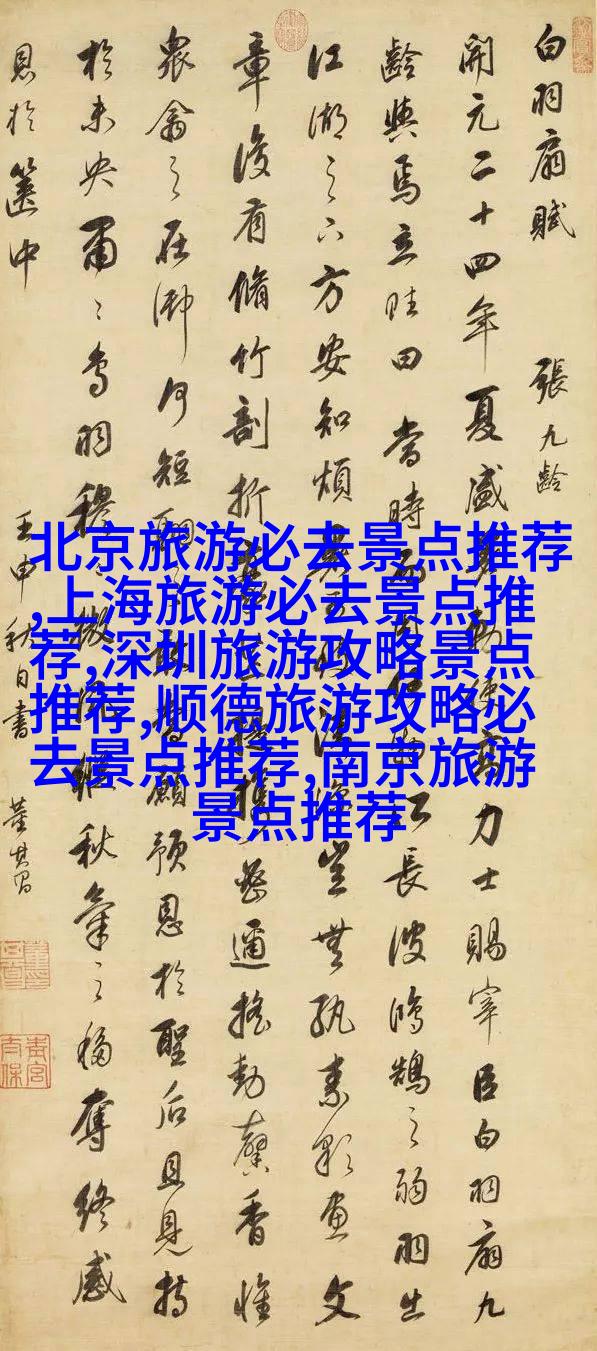 白羽扇賦 張九齡
開元二十四年夏盛 力士賜宰臣白羽扇九
齡與焉立賦曰 當時 長彼鴻鵠之弱羽出
江湖之下方安知煩 豈無紈素彩畫文
章復有脩竹剖析 提攜密邇搖動馨香惟
衆禽之在御何短翮之敢當顧預恩於聖后且見持
於未央 羽穆 微風縱秋氣之移奪終感
恩於篋中
壬申秋日書 董其昌
北京旅游必去景点推荐
,上海旅游必去景点推
荐,深圳旅游攻略景点
推荐,顺德旅游攻略必
去景点推荐,南京旅游
景点推荐